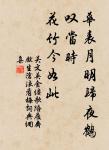 華表月明歸夜鶴
嘆當時
花竹今如此
吳文英金縷歌陪履齋
先生滄浪看梅詞典僩
集